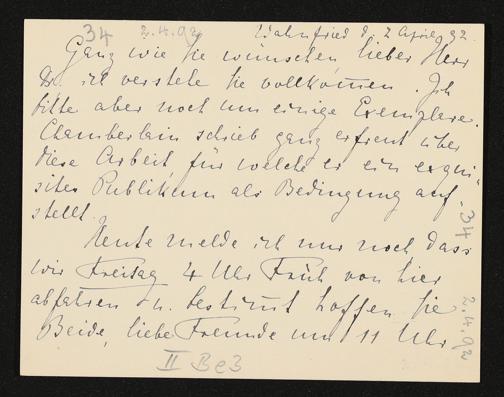 34 2.4.92 Wahnfried d. 2 April 92.
Ganz wie Sie wünschen, lieber Herr
Dr. ich verstehe Sie vollkommen. Ich
bitte aber noch um einige Exemplare.
Chamberlain schrieb ganz erfreut über
diese Arbeit, für welche er ein exqui-
sites Publikum als Bedingung auf-
stellt.
Heute melde ich nur noch dass
wir Freitag 4 Uhr Früh von hier
abfahren u. bestimmt hoffen Sie
Beide, liebe Freunde um 11 Uhr
II Be3
34
2.4.92